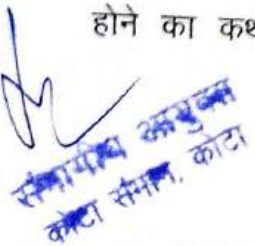 होने का कथ
संभागीय आयुक्त
कोटा संभाग, कोटा